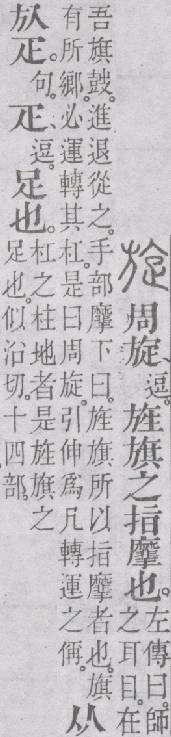 旋周旋、逗。旌旗之指摩也。左傳曰。師
之耳目。在
吾旗鼓。進退從之。手部摩下曰。旌旗所以指摩者也。旗
有所鄉。必運轉其杠。是曰周旋。引伸爲凡轉運之偁。从
㫃疋。句。疋、逗。足也。杠之柱地者是旌旗之
足也。似沿切。十四部。